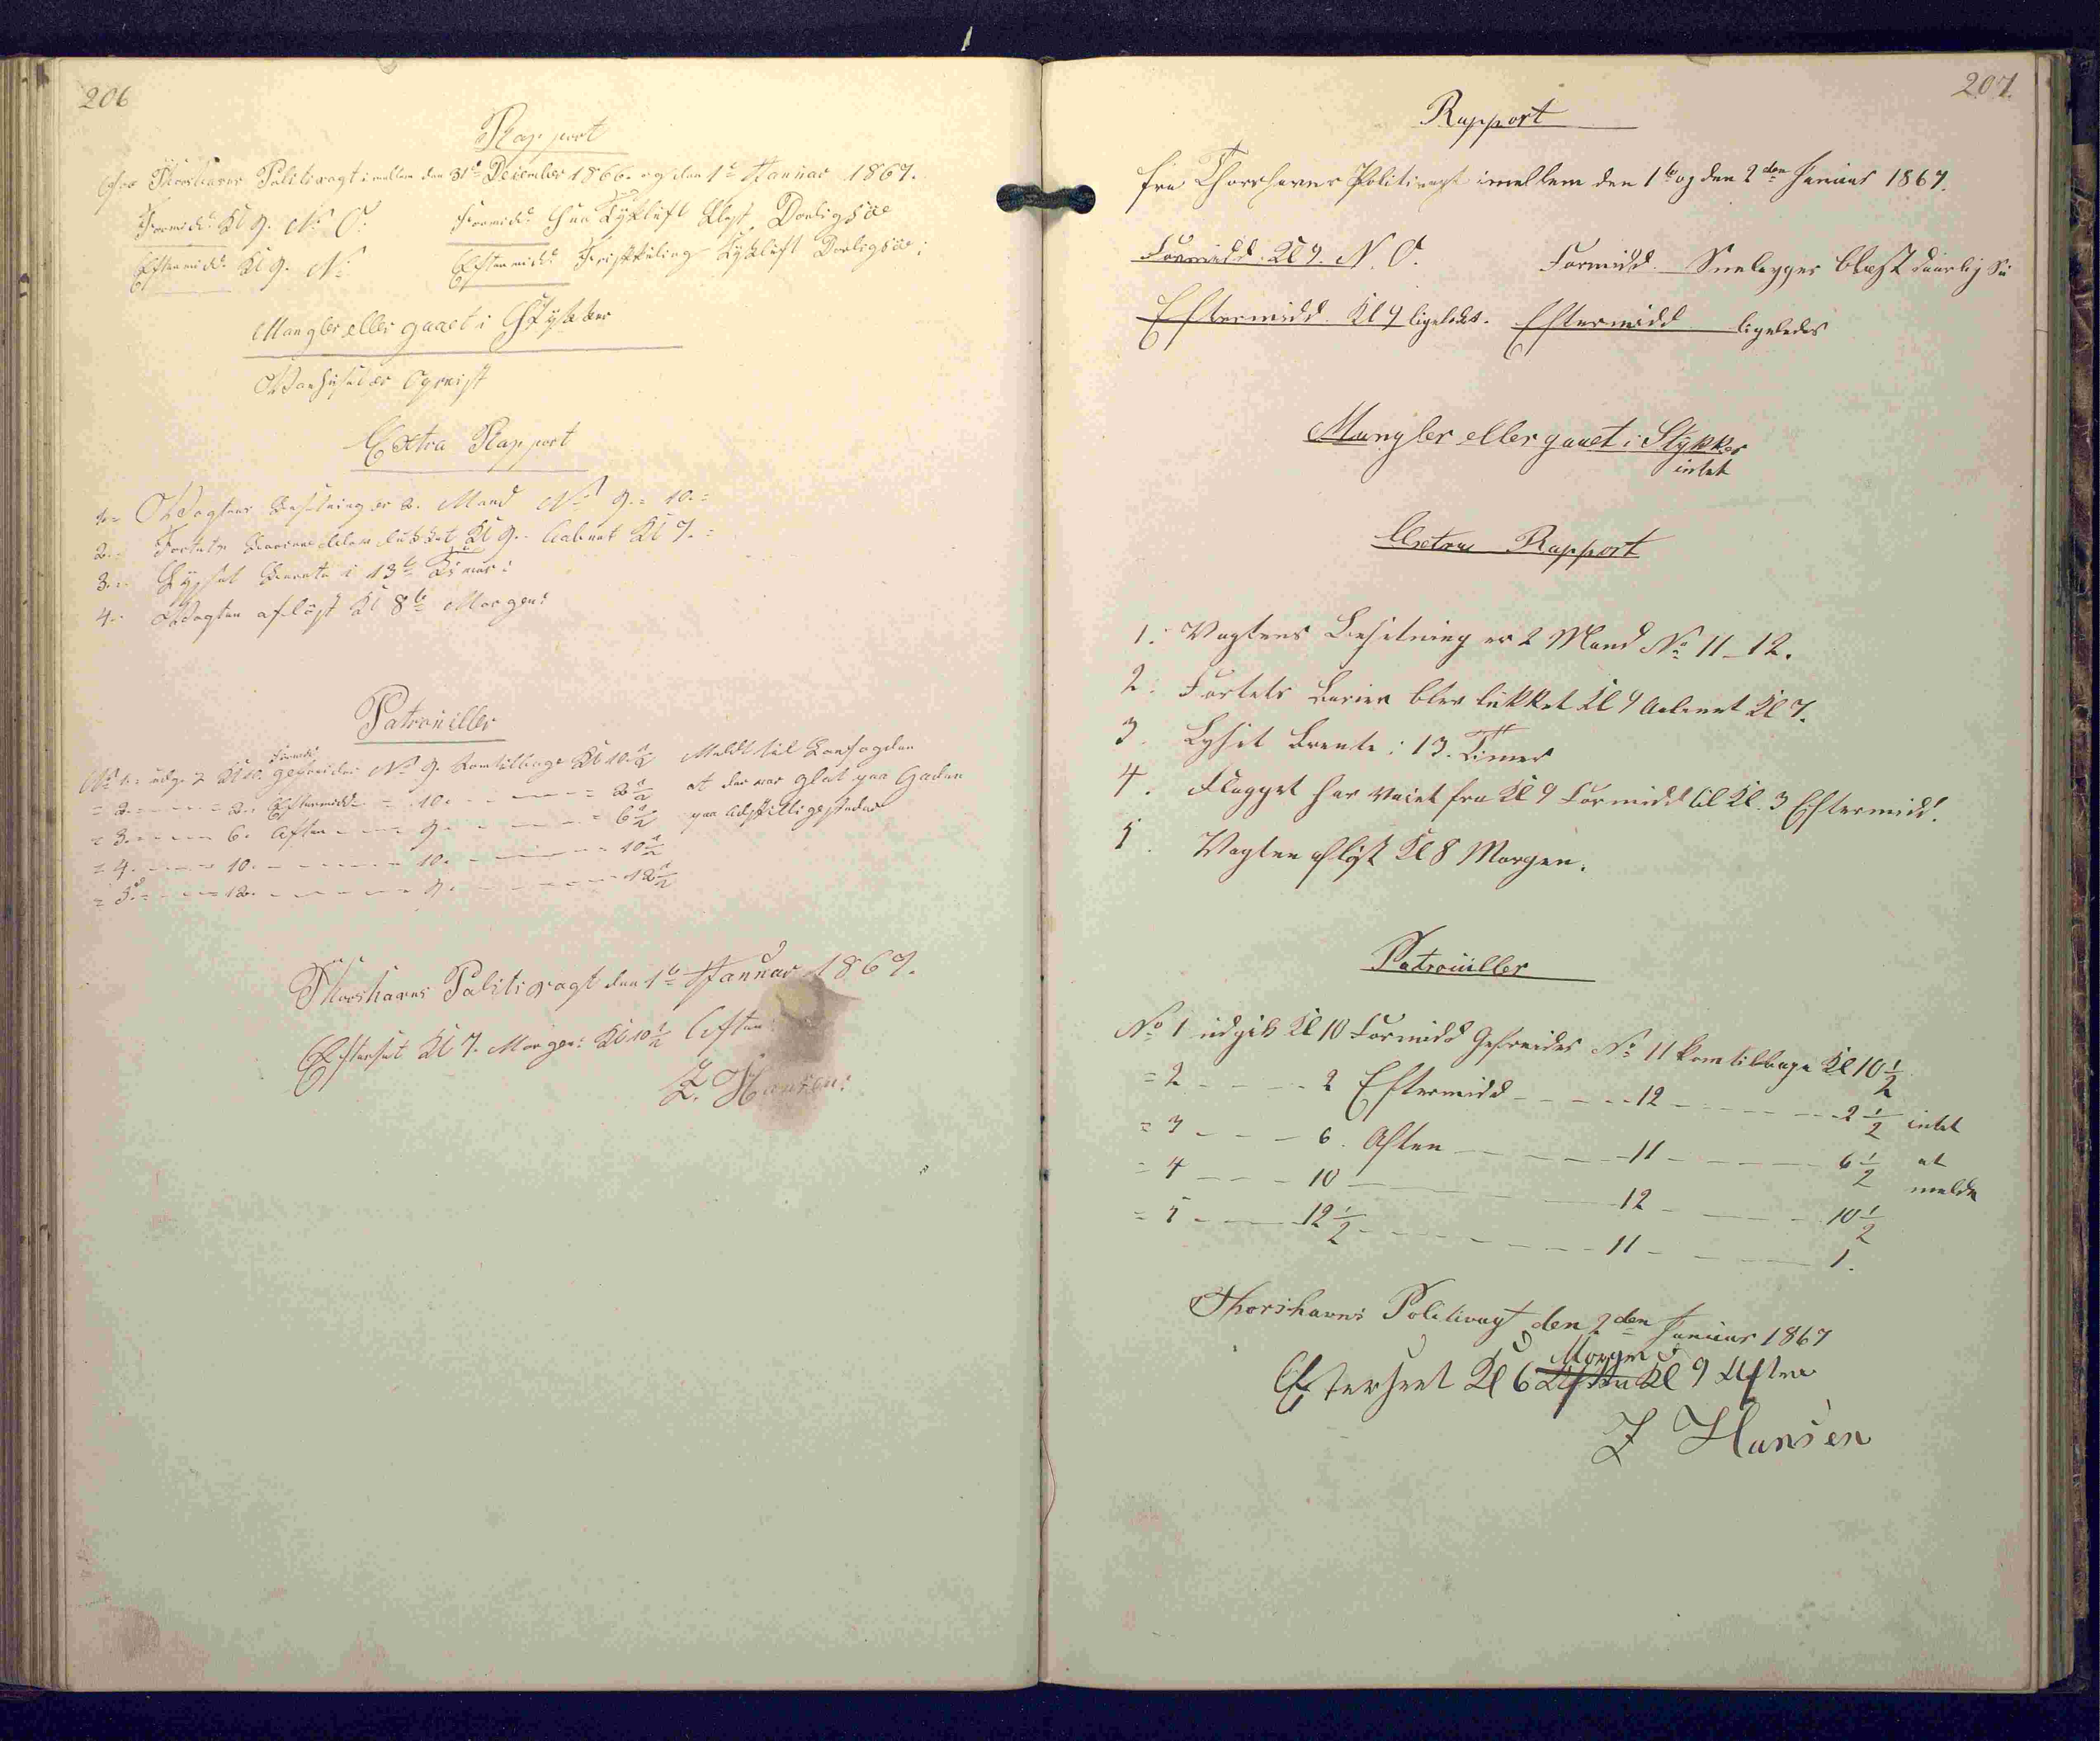 206
Rapport
fra Thorshavns Politivagt imellem den 31te December 1866. og den 1te Januar 1867.
Formidd: Kl 9. N. O. Formidd: Tykluft Blæst Daarlig Söe
Eftermidd: Kl 9. N: Eftermidd: Frisk Kuling Tykluft Daarlig Söe:
Mangler eller gaaet i Stykker
Vanhuset er Opreist
Extra Rapport
1. Vagtens Besetning er 2. Mand No 9. = 10. =
2. Fortets Barriere blev lukket Kl 9. Aabnet Kl 7. =
3. Lyset Brente i 13 Timer:
4. Vagten aflöst Kl 8te Morgen:
Patrouiller
No 1. udgik Kl 10. Formd: Gefreider No 9. kom tilbage Kl 10 1/2 Meldt til Landfogden
= 2. - - - = 2. Eftermidd - = 10. - - - = 2 1/2 at der var glat paa Gaden
= 3. - - - 6. Aften - - - 9. - - - = 6 1/2 paa adskillige steder
= 4. - - - 10. - - - 10. - - - = 10 1/2
= 5. - - - 12. - - - 9. - - - 12 1/2
Thorshavns Politivagt den 1te Januar 1867.
Efterseet Kl 7. Morgen: Kl 10 1/2 Aften:
Z. Hansen:
207.
Rapport
fra Thorshavns Politivagt imellem den 1te og den 2den Januar 1867.
Formidd. Kl 9. N. O. Formidd. Sneebyger blæst daarlig Sö
Eftermidd. Kl 9 ligeledes. Eftermidd ligeledes
Mangler eller gaaet i Stykker
intet
Extra Rapport
1. Vagtens Besetning er 2 Mand No 11 - 12.
2. Fortets Barier blev lukket Kl 9 Aabnet Kl 7.
3. Lyset brente i 13. Timer
4. Flagget har vaiet fra Kl 9 Formidd til Kl. 3 Eftermidd.
5. Vagten aflöst Kl 8 Morgen.
Patrouiller
No 1 udgik Kl 10 Formidd Gefreider No 11 kom tilbage Kl 10 1/2
= 2 - - - 2 Eftermidd - - - 12 - - - 2 1/2 intet
= 3 - - - 6. Aften - - - 11 - - - 6 1/2 at
= 4 - - - 10 - - - 12 - - - 10 1/2 melde
= 5 - - - 12 1/2 - - - 11 - - - 1.
Thorshavns Politivagt den 2den Januar 1867
Morgen
Efterseet Kl 6 Aften Kl 9 Aften
Z Hansen